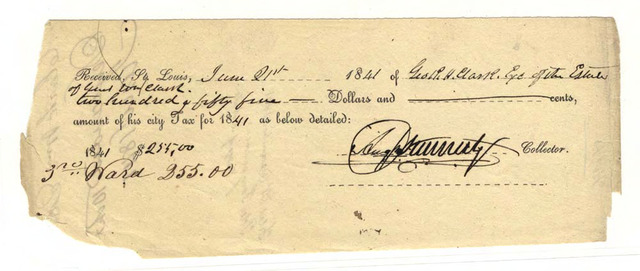 Received, St Louis, June 21st 1841 of Geo. R. H. Clark. Exc of the Estate
of Genl Wm Clark
two hundred & fifty five Dollars and cents,
amount of his city Tax for 1841 as below detailed:
1841 $255,00
Collector.
3rd Ward 255.00